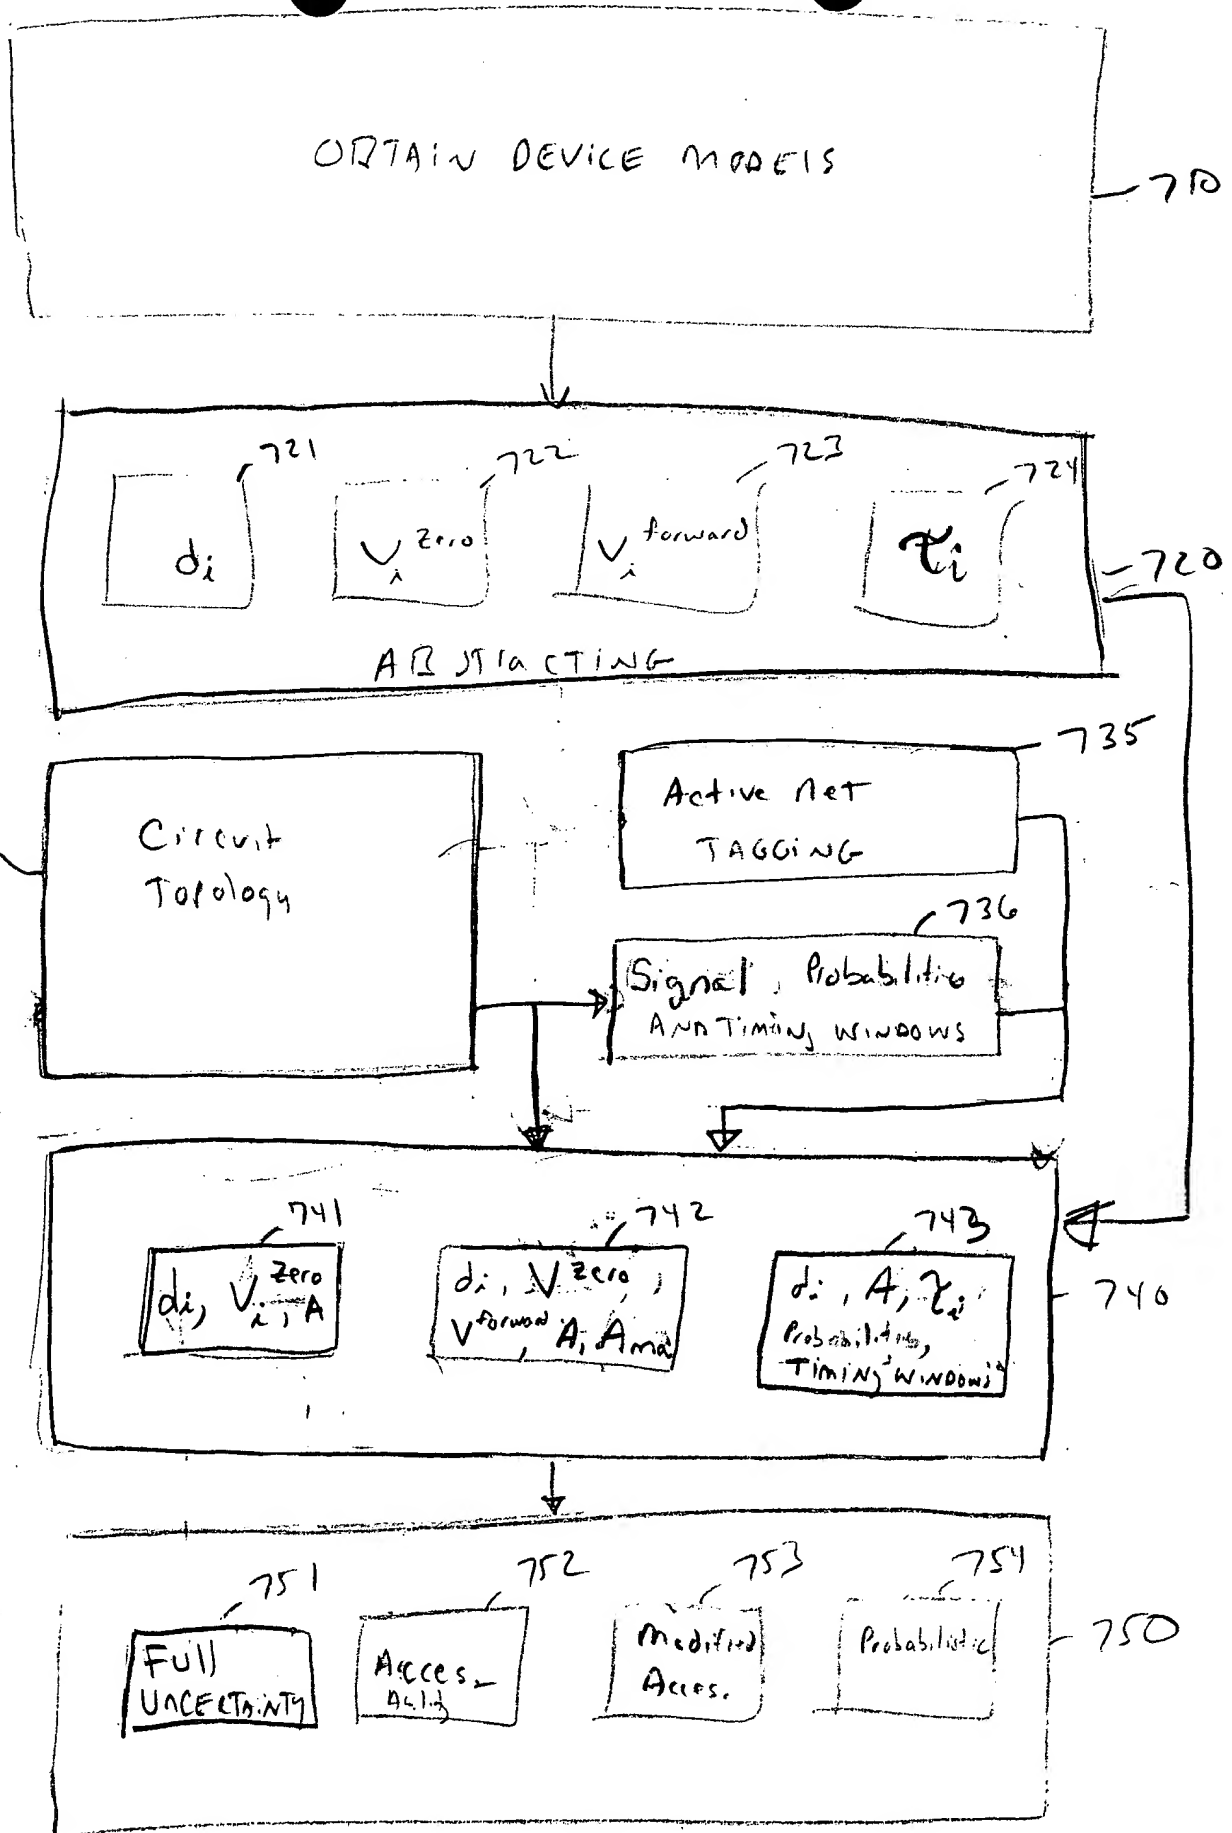 OBTAIN DEVICE MODELS
710
721
722
723
724
d_i
V_i^zero
V_i^forward
τ_i
720
ABSTRACTING
735
Active Net
TAGGING
Circuit
Topology
736
Signal, Probabilities
AND TIMING WINDOWS
741
742
743
d_i, V_i^zero, A
d_i, V^zero,
V^forward, A,
d_i, A, τ_i
Probabilities,
TIMING WINDOWS
740
751
752
753
754
Full
UNCERTAINTY
Acces-
Ability
Modified
Acces.
Probabilistic
750